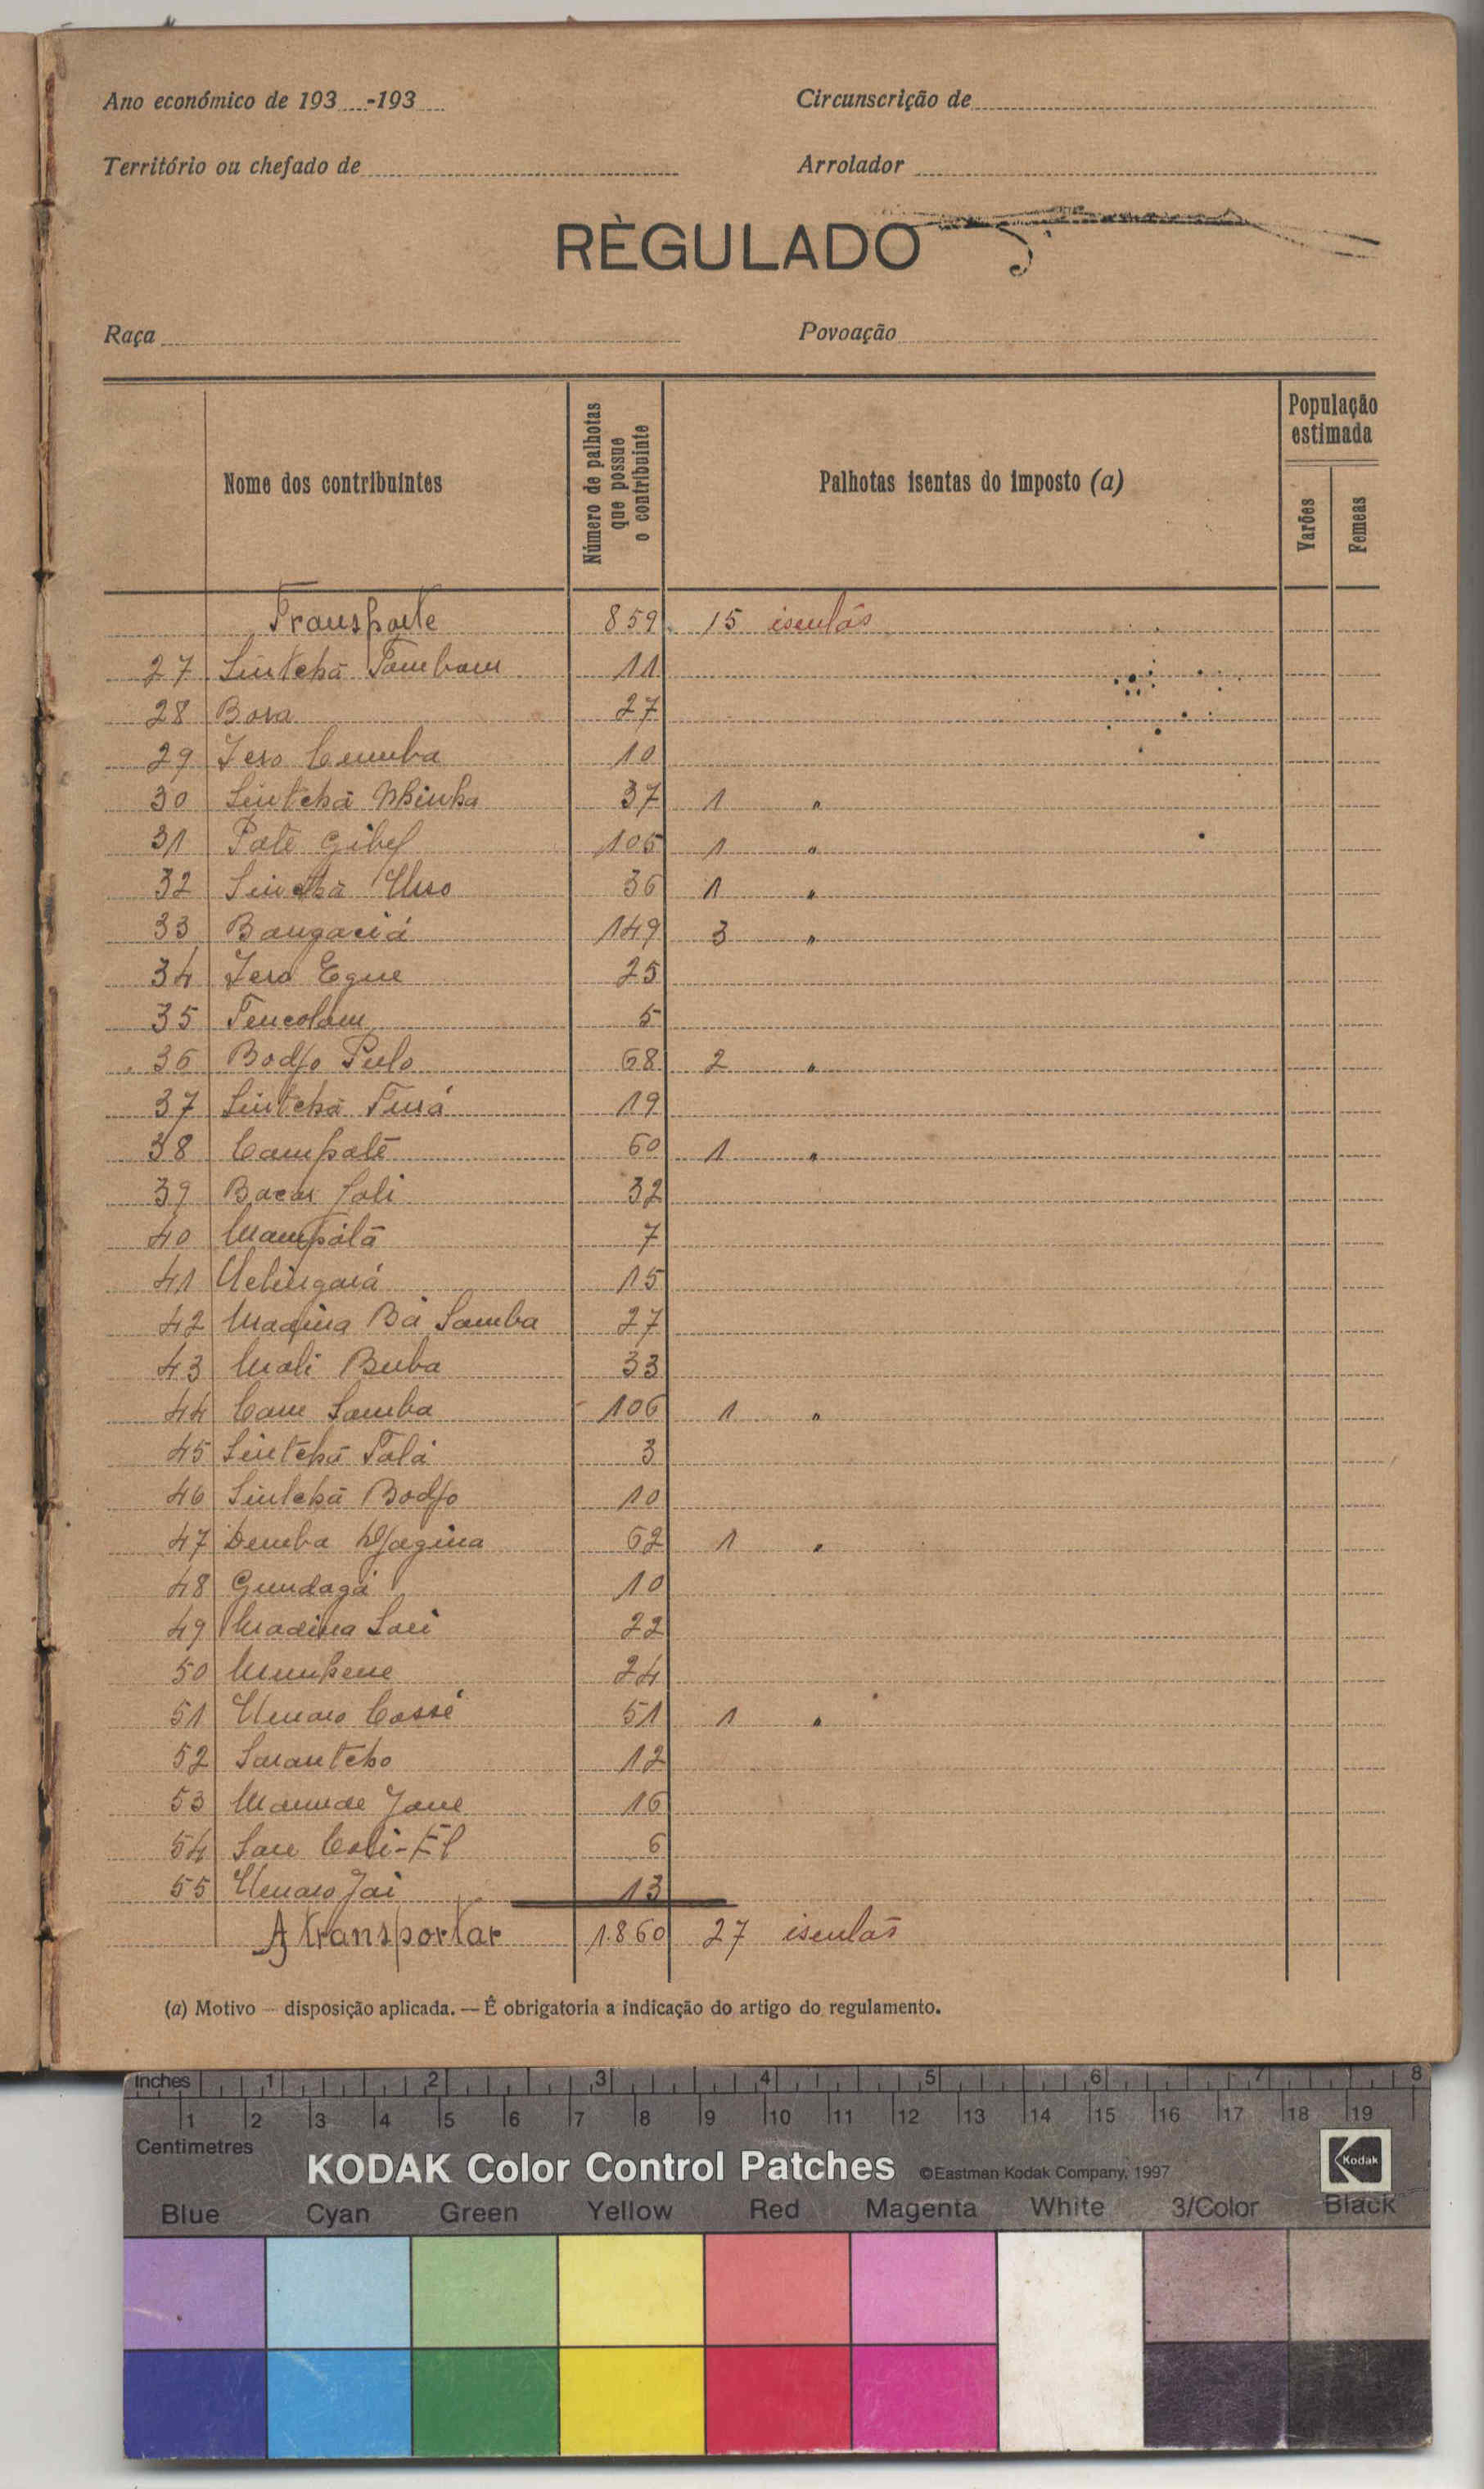 Ano económico de 193 -193
Circunscrição de
Território ou chefado de
Arrolador
RÈGULADO
Raça
Povoação
Nome dos contribuintes
Número de palhotas que possue o contribuinte
Palhotas isentas do imposto (a)
População estimada
Varões
Femeas
Transporte 859 15 isentas
27 Sintchã Tambam 11
28 Bora 27
29 Jero Cumba 10
30 Sintchã Nhinha 37 1 "
31 Paté Gibel 105 1 "
32 Sintchã Uro 36 1 "
33 Bangaciá 149 3 "
34 Jero Egue 25
35 Tencolam 5
36 Bodjo Pulo 68 2 "
37 Sintchã Turá 19
38 Campatē 60 1 "
39 Bacar Joli 32
40 Mampátã 7
41 15
42 Madina Bá Samba 27
43 Mali Buba 33
44 Cam Samba 106 1 "
45 Sintchã Palá 3
46 Sintchã Bodjo 10
47 Demba 62 1 "
48 Gundagá 10
49 Madina Sari 22
50 24
51 Umaro Cossé 51 1 "
52 Sarantcho 12
53 Mamude Jane 16
54 Sare Coli-El 6
55 Umaro Jai 13
A transportar 1.860 27 isentas
(a) Motivo — disposição aplicada. — É obrigatoria a indicação do artigo do regulamento.
Inches 1 2 3 4 5 6 7 8
1 2 3 4 5 6 7 8 9 10 11 12 13 14 15 16 17 18 19
Centimetres
KODAK Color Control Patches ©Eastman Kodak Company, 1997 Kodak
Blue Cyan Green Yellow Red Magenta White 3/Color Black